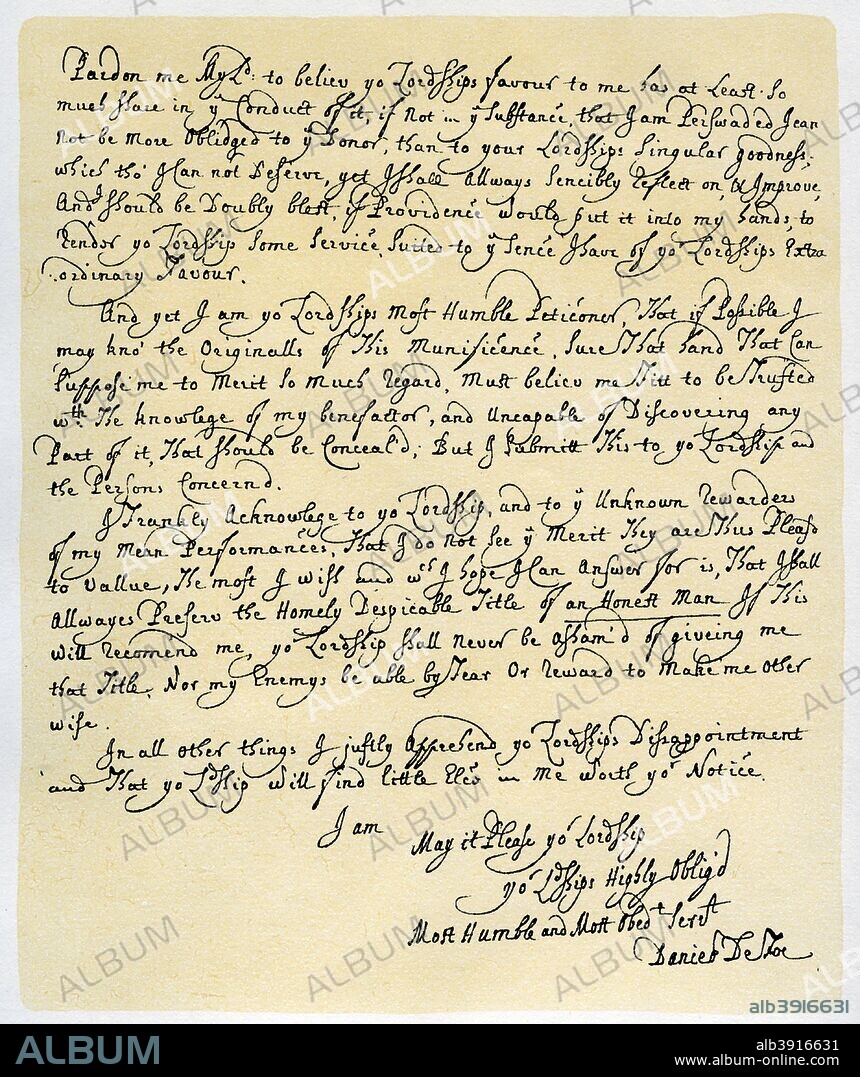 Pardon me My Ld: to believ yor Lordships favour to me has at Least So
much share in ye Conduct of it, if Not in ye Substance, that I am Perswaded I can
Not be More Oblidged to ye Donor, than to your Lordships Singular goodness;
which tho' I Can not Deserve, yet I shall Allways Sencibly Reflect on, & Improve,
And I should be Doubly blest, if Providence would put it into my hands, to
Render yor Lordship Some Service, Suited to ye Sence I have of yor Lordships Extra
ordinary Favour.
And yet I am yor Lordships Most Humble Peticoner, That if Possible I
may kno' the Originalls of This Munificence, Sure That hand That Can
Suppose me to Merit So Much Regard, Must believ me Fitt to be Trusted
wth The knowlege of my benefactor, and Uncapable of Discovering any
Part of it, That should be Conceal'd; But I Submitt This to yor Lordship and
the Persons Concern'd.
I Frankly Acknowlege to yor Lordship, and to ye Unknown Rewarders
of my Mean Performances, That I do not See ye Merit They are Thus Pleas'd
to Vallue, The most I wish and wch I hope I Can Answer for is, That I shall
Allwayes Preserv the Homely Despicable Title of an Honest Man If This
will recomend me, yor Lordship shall never be asham'd of giveing me
that Title, Nor my Enemys be able by Fear Or Reward to Make me Other
wise.
In all other things I justly Apprehend yor Lordships Disappointment
and That yor Ldship will find little Else in Me worth yor Notice.
I am
May it Please yor Lordship
yor Ldships Highly Oblig'd
Most Humble and Most Obedt Servt
Daniel De Foe
alb3916631
ALBUM
alb3916631
www.album-online.com